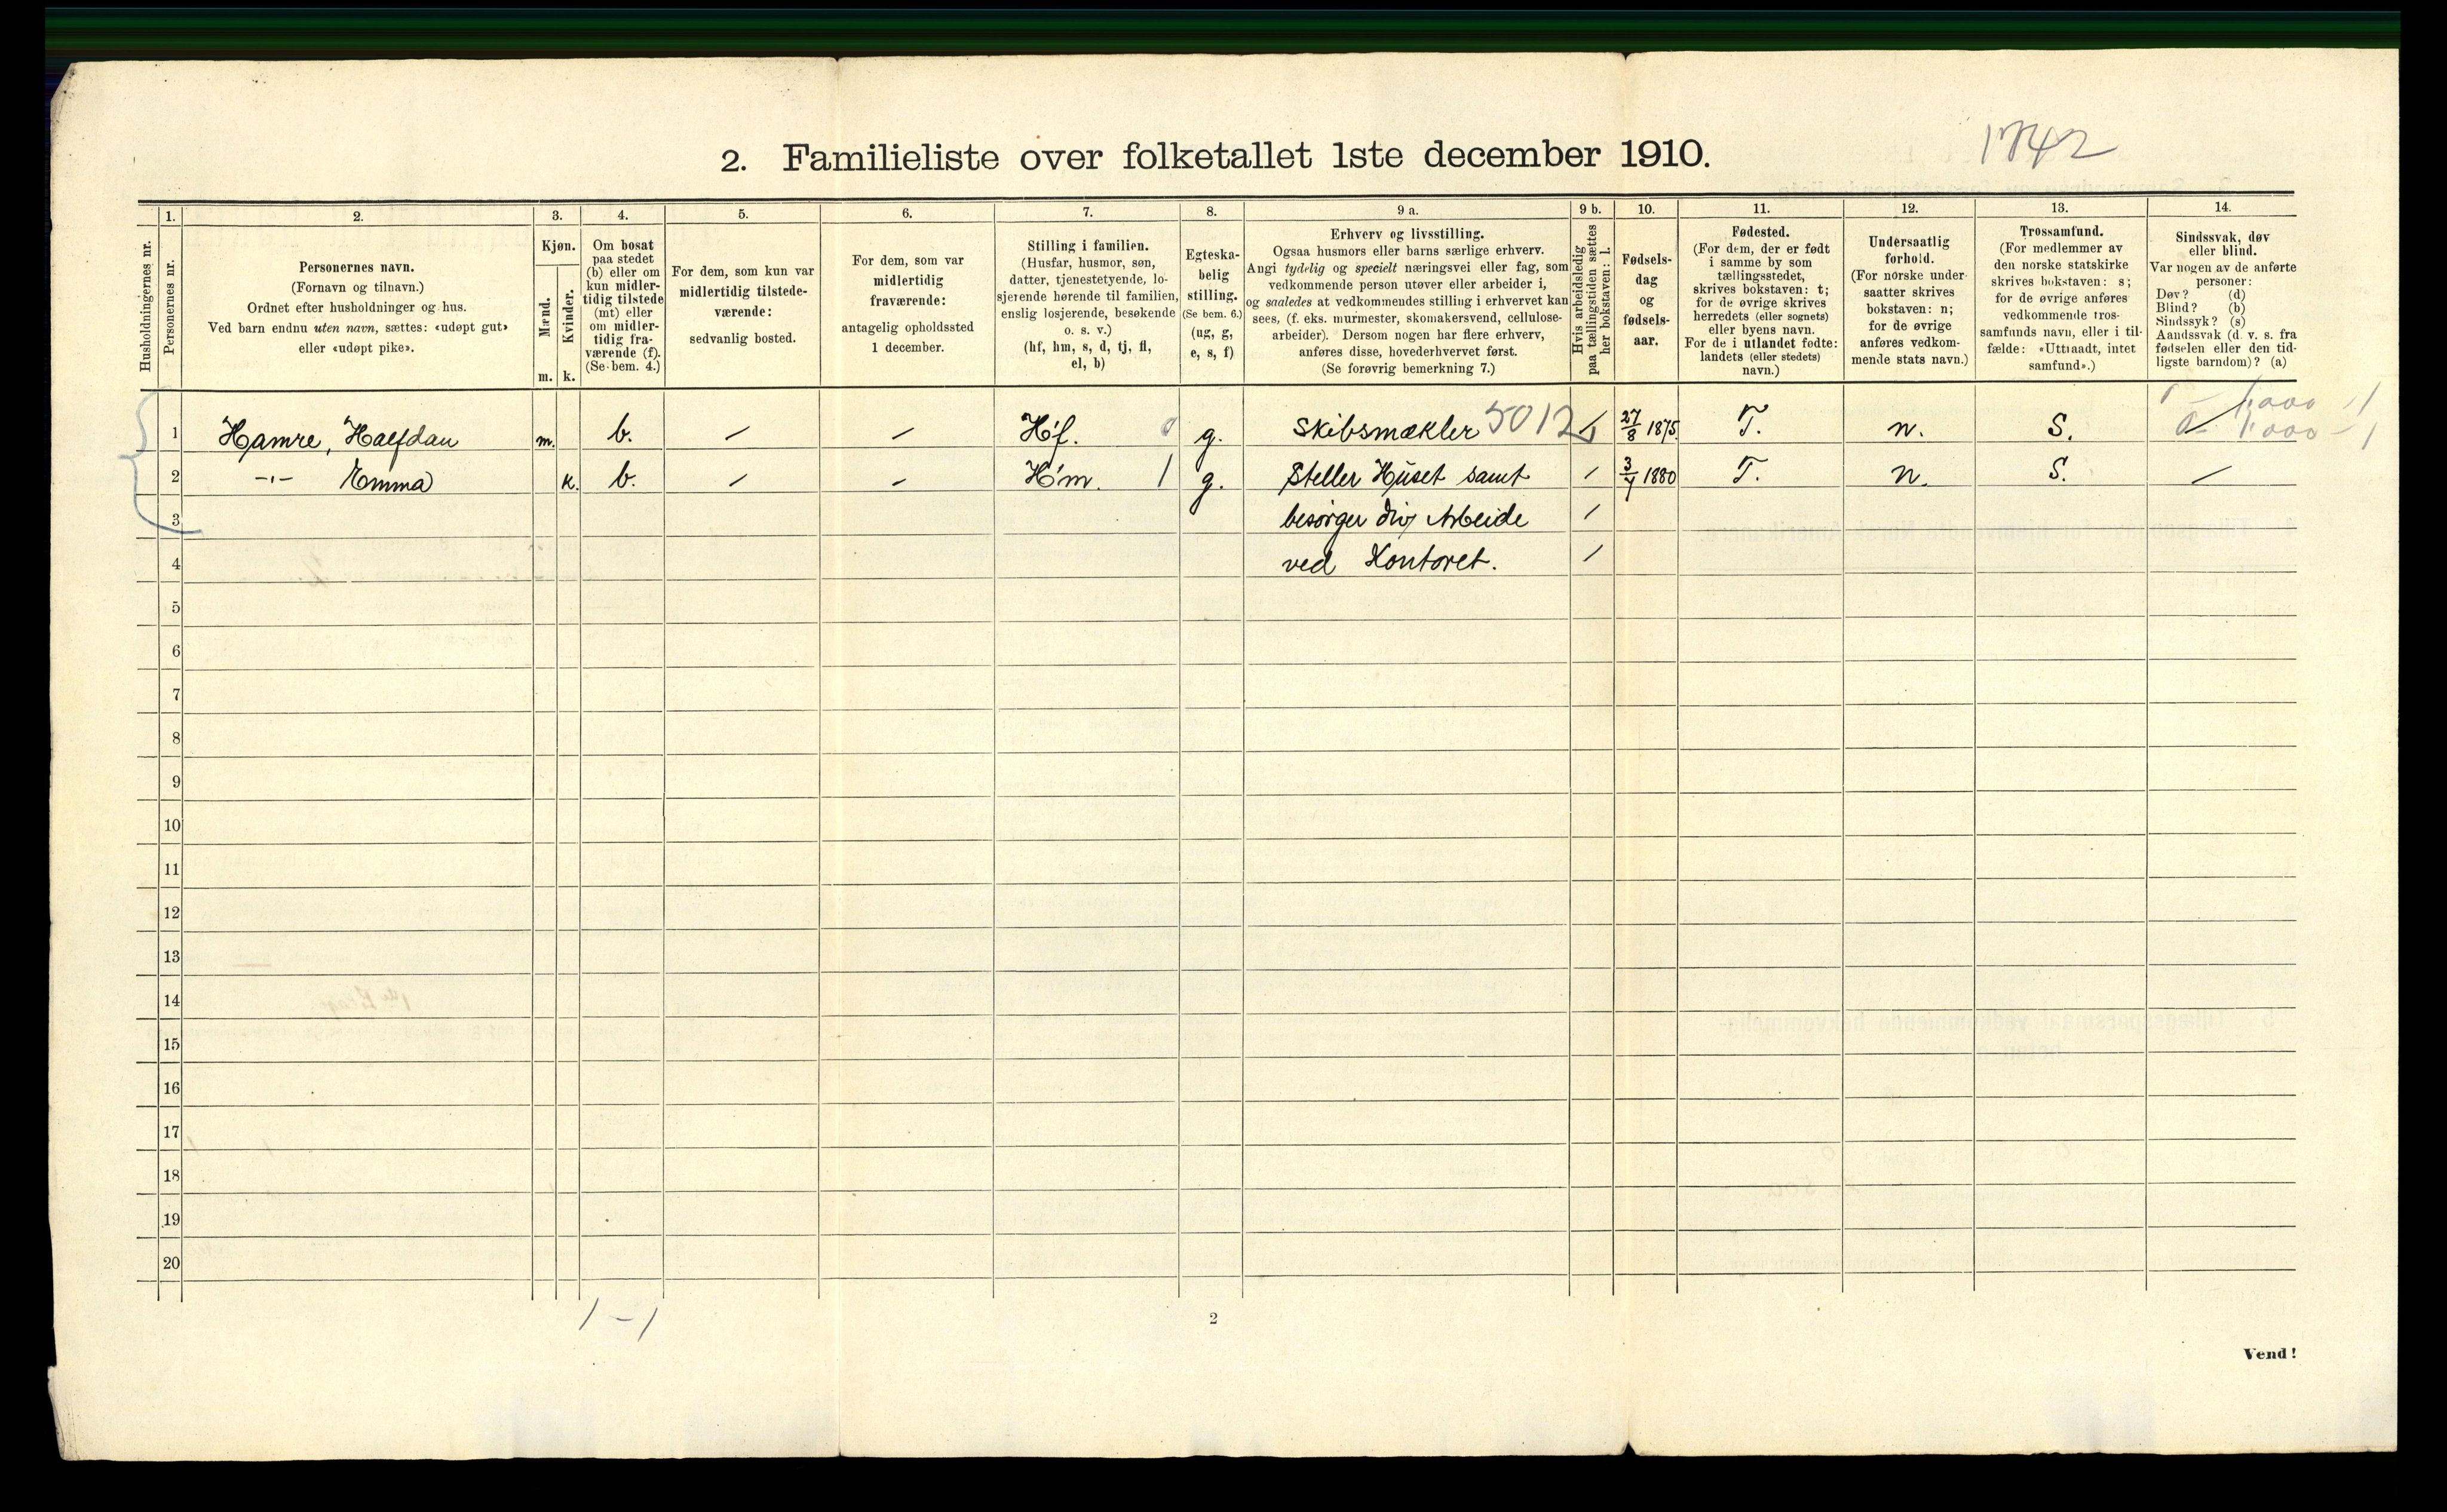 1742
2. Familieliste over folketallet 1ste december 1910.
Husholdningernes nr.
1.
Personernes nr.
2.
Personernes navn.
(Fornavn og tilnavn.)
Ordnet efter husholdninger og hus.
Ved barn endnu uten navn, sættes: «udøpt gut»
eller «udøpt pike».
3.
Kjøn.
Mænd.
Kvinder.
m. k.
4.
Om bosat
paa stedet
(b) eller om
kun midler-
tidig tilstede
(mt) eller
om midler-
tidig fra-
værende (f).
(Se bem. 4.)
5.
For dem, som kun var
midlertidig tilstede-
værende:
sedvanlig bosted.
6.
For dem, som var
midlertidig
fraværende:
antagelig opholdssted
1 december.
7.
Stilling i familien.
(Husfar, husmor, søn,
datter, tjenestetyende, lo-
sjerende hørende til familien,
enslig losjerende, besøkende
o. s. v.)
(hf, hm, s, d, tj, fl,
el, b)
8.
Egteska-
belig
stilling.
(Se bem. 6.)
(ug, g,
e, s, f)
9 a.
Erhverv og livsstilling.
Ogsaa husmors eller barns særlige erhverv.
Angi tydelig og specielt næringsvei eller fag, som
vedkommende person utøver eller arbeider i,
og saaledes at vedkommendes stilling i erhvervet kan
sees, (f. eks. murmester, skomakersvend, cellulose-
arbeider). Dersom nogen har flere erhverv,
anføres disse, hovederhvervet først.
(Se forøvrig bemerkning 7.)
9 b.
Hvis arbeidsledig
paa tællingstiden sættes
her bokstaven: l.
10.
Fødsels-
dag
og
fødsels-
aar.
11.
Fødested.
(For dem, der er født
i samme by som
tællingsstedet,
skrives bokstaven: t;
for de øvrige skrives
herredets (eller sognets)
eller byens navn.
For de i utlandet fødte:
landets (eller stedets)
navn.)
12.
Undersaatlig
forhold.
(For norske under-
saatter skrives
bokstaven: n;
for de øvrige
anføres vedkom-
mende stats navn.)
13.
Trossamfund.
(For medlemmer av
den norske statskirke
skrives bokstaven: s;
for de øvrige anføres
vedkommende tros-
samfunds navn, eller i til-
fælde: «Uttraadt, intet
samfund».)
14.
Sindssvak, døv
eller blind.
Var nogen av de anførte
personer:
Døv? (d)
Blind? (b)
Sindssyk? (s)
Aandssvak (d. v. s. fra
fødselen eller den tid-
ligste barndom)? (a)
1 Hamre, Halfdan m. b. / / H'f. 0 g. Skibsmækler 5012 27/8 1875. T. n. S.
2 -"- Emma k. b. / / H'm. 1 g. Steller Huset samt / 3/7 1880 T. n. S. /
3 besørger div Arbeide /
4 ved Kontoret. /
5
6
7
8
9
10
11
12
13
14
15
16
17
18
19
20
1 - 1
2
Vend!